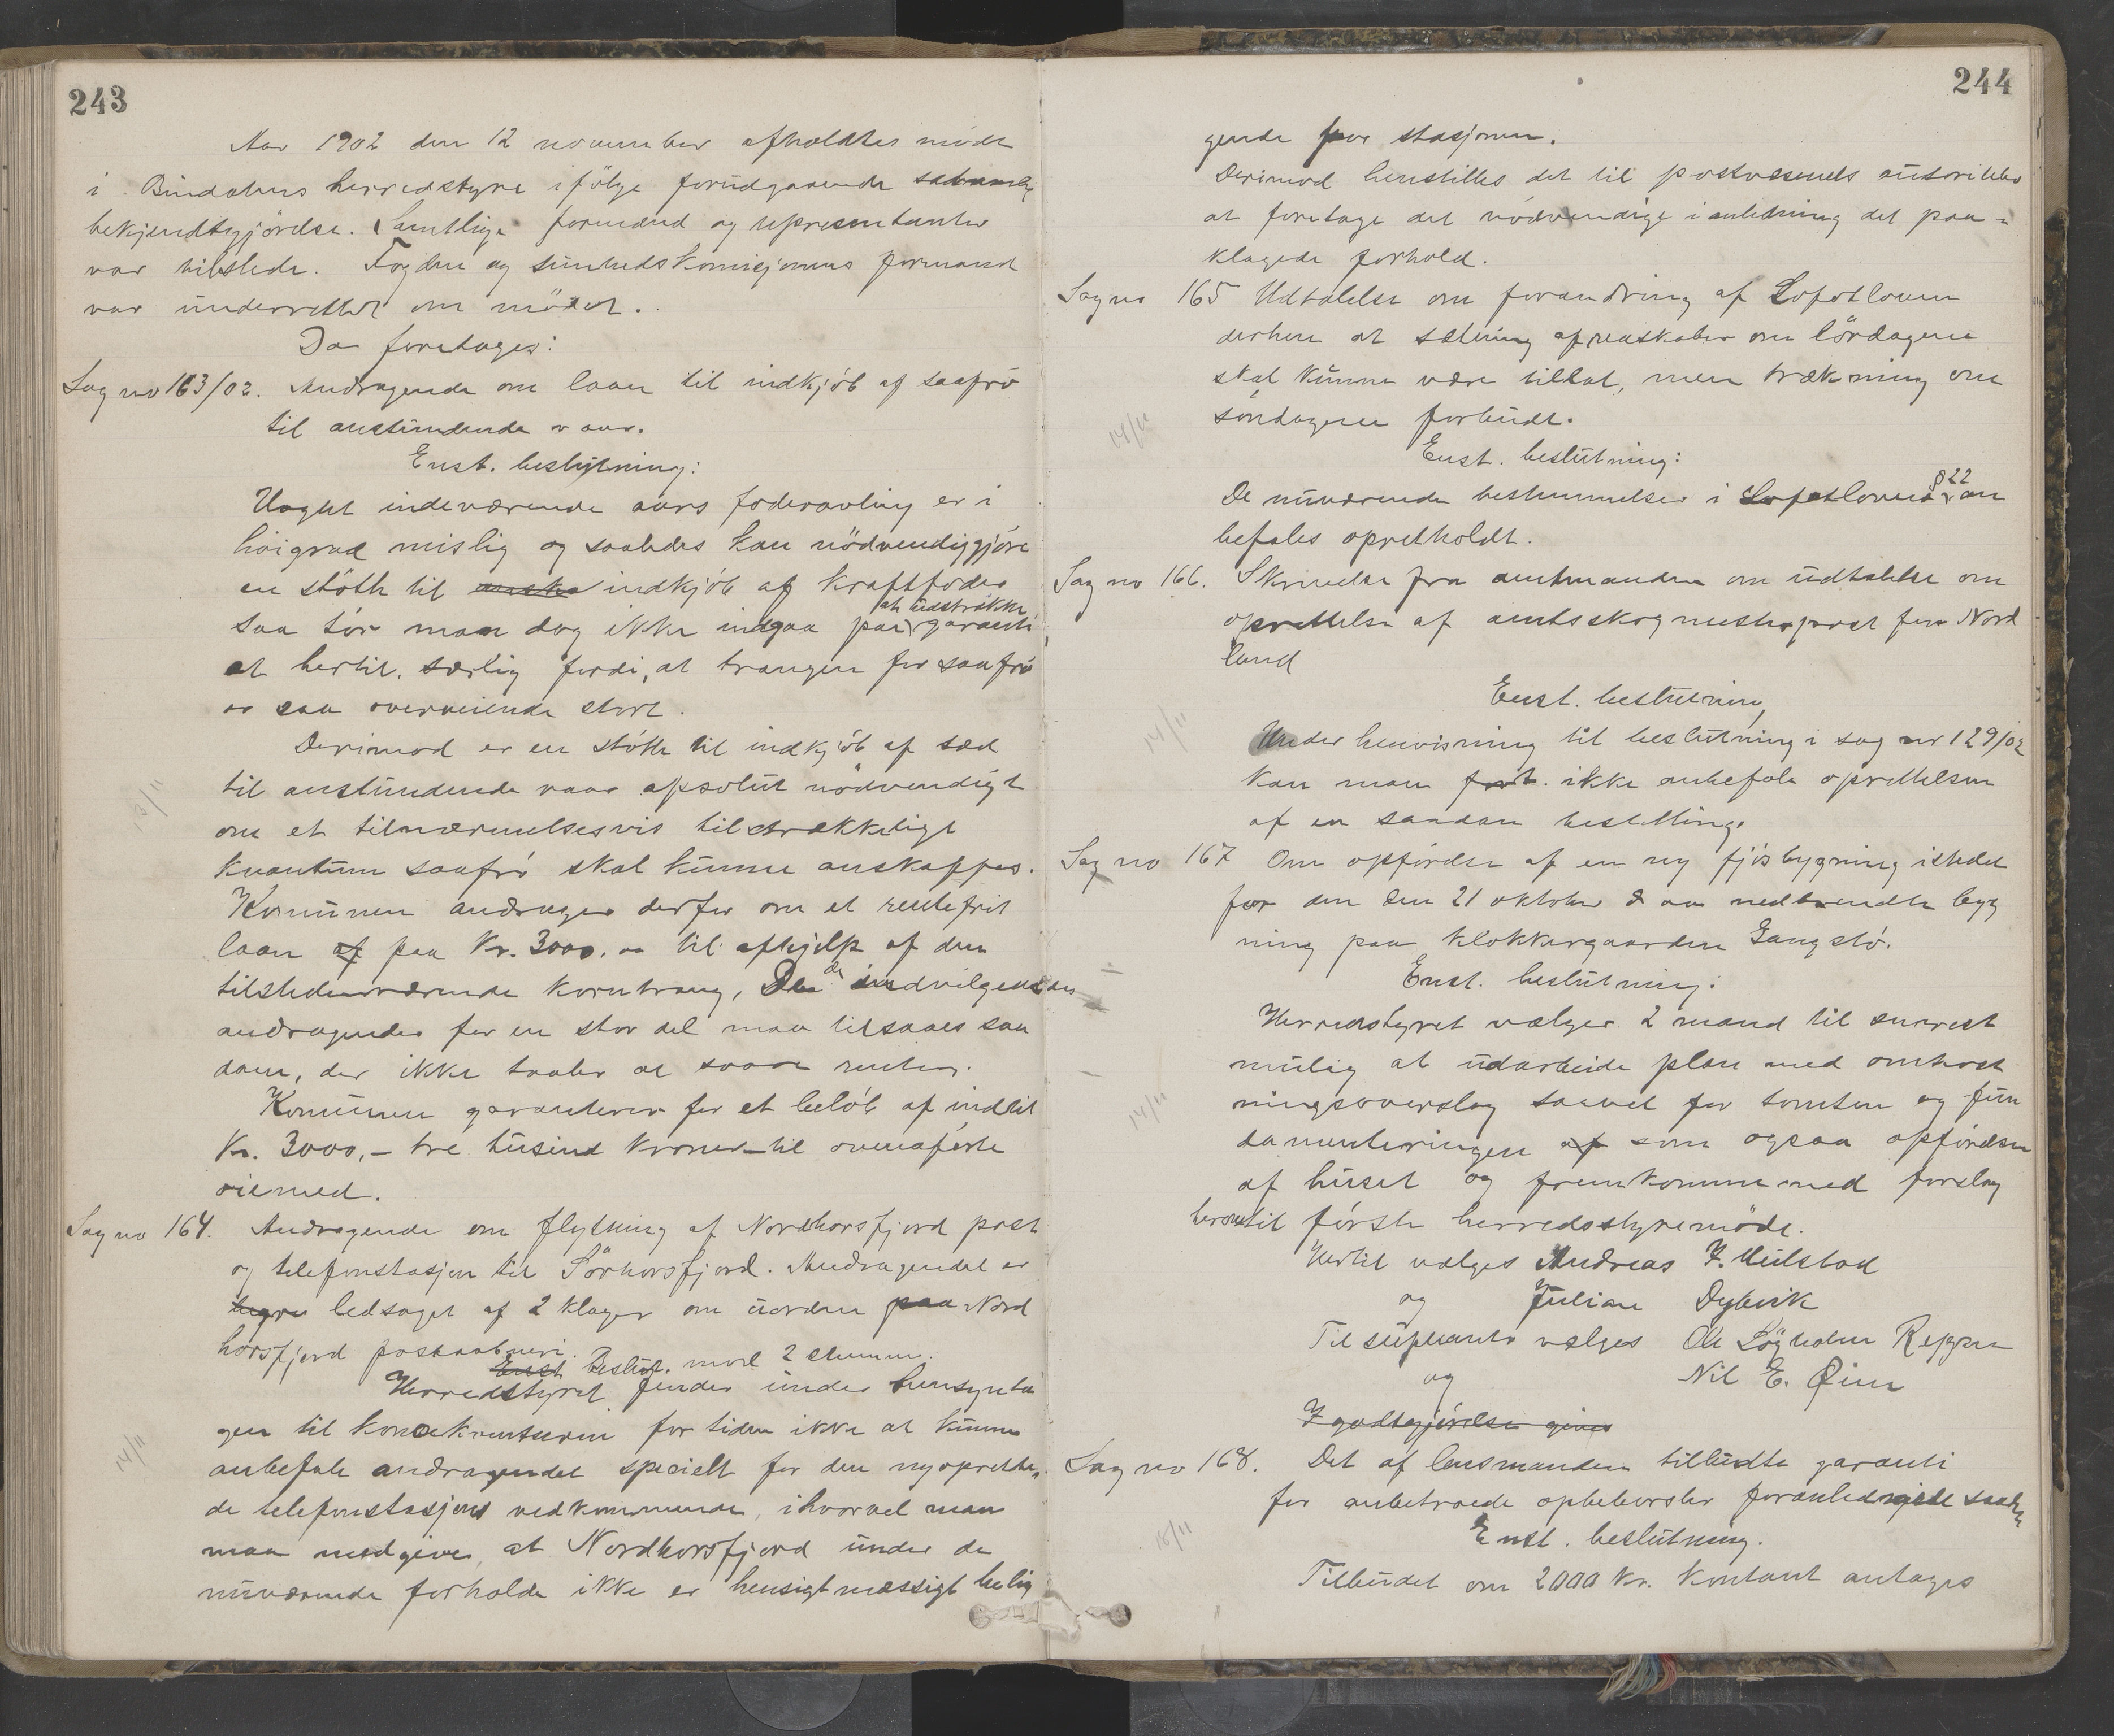 243
Aar 1902 den 12 november afholdtes møde
i Bindalens herredstyre ifölge forudgaaende
bekjendtgjörelse. Samtlige formænd og representanter
var tilstede. Fogden og sundhedskomisjonens formand
var underrettet om mödet.
Da foretages:
Sag no 163/02. Andragende om laan til indkjöb af saafrö
til anstundende vaar.
Enst. beslutning:
Uagtet indeværende aars foderavling er i
höigrad mislig og saaledes kan nödvendiggjöre
en stötte til indkjöb af kraftfoder
saa tör man dog ikke indgaa paa at udstrække garanti
et hertil, særlig fordi, at trangen for saafrö
er saa overveiende stor.
Derimod er en stötte til indkjöb af sæd
til anstundende vaar apsolut nödvendigt
om et tilnærmelsesvis tilstrækkeligt
kvantum saafrö skal kunne anskaffes.
Komunen andrager derfor om et rentefrit
laan af paa Kr. 3000.00 til afhjælp af den
tilstedeværende korntrang, Da de indvilgendes
andragender for en stor del maa tilsaaes saa
dane, der ikke taaler at svare renter.
Komunen garanterer for et belöb af indtil
Kr. 3000,- tre tusind kroner - til ovenaförte
öiemed.
Sag no 164. Andragende om flytning af Nordhorsfjord post
og telefonstasjon til Sörhorsfjord. Andragendet er
ledsaget af 2 klager om uorden paa Nord
horsfjord postaabneri.
Enst. Beslut. mod 2 stemmer.
Herredstyret finder under hensynta
gen til konsekventserne for tiden ikke at kunne
anbefale andragendet specielt for den nyoprette-
de telefonstasjons vedkommende, ihvorvel man
maa medgive, at Nordhorsfjord under de
nuværende forholde ikke er hensigtmæssigt belig
14/11
244
gende for stasjonen.
Derimod henstilles det til postvæsenets autoriteter
at foretage det nödvendige i anledning det paa-
klagede forhold.
Sag no 165 Udtalelse om forandring af Lofotloven
derhen at sætning af redskaber om lördagene
skal kunne være tillat, men trækning om
söndagene forbudt.
14/11
Enst. beslutning:
De nuværende bestemmelser i Lofotlovens § 22 an
befales opretholdt.
Sag no 166. Skrivelse fra amtmanden om udtalelse om
oprettelse af amtsskogmesterpost for Nord
land
Enst. beslutning,
14/11
Under henvisning til beslutning i sag nr 129/02
kan man fort. ikke anbefale oprettelsen
af en saadan bestilling.
Sag no 167 Om opförelse af en ny fjösbygning istedet
for den den 21 oktober d aa nedbrendte byg
ning paa klokkergaarden Gangstö.
Enst. beslutning:
Herredstyret vælger 2 mand til snarest
mulig at udarbeide plan med omkost
14/11
ningsoverslag saavel for tomten og fun
damenteringen af som ogsaa opförelsen
af huset og fremkomme med forslag
herom til förste herredsstyremöde.
Hertil vælges Andreas J. Heilstad
og Julian Dybvik
Til supleanter vælges Ole Söyholm Reppen
og Nil E. Øien
I godtgjörelse gives
Sag no 168. Det af lensmanden tilbudte garanti
for anbetroede opbebörsler
15/11
Enst. beslutning.
Tilbudet om 2000 kr. kontant antages